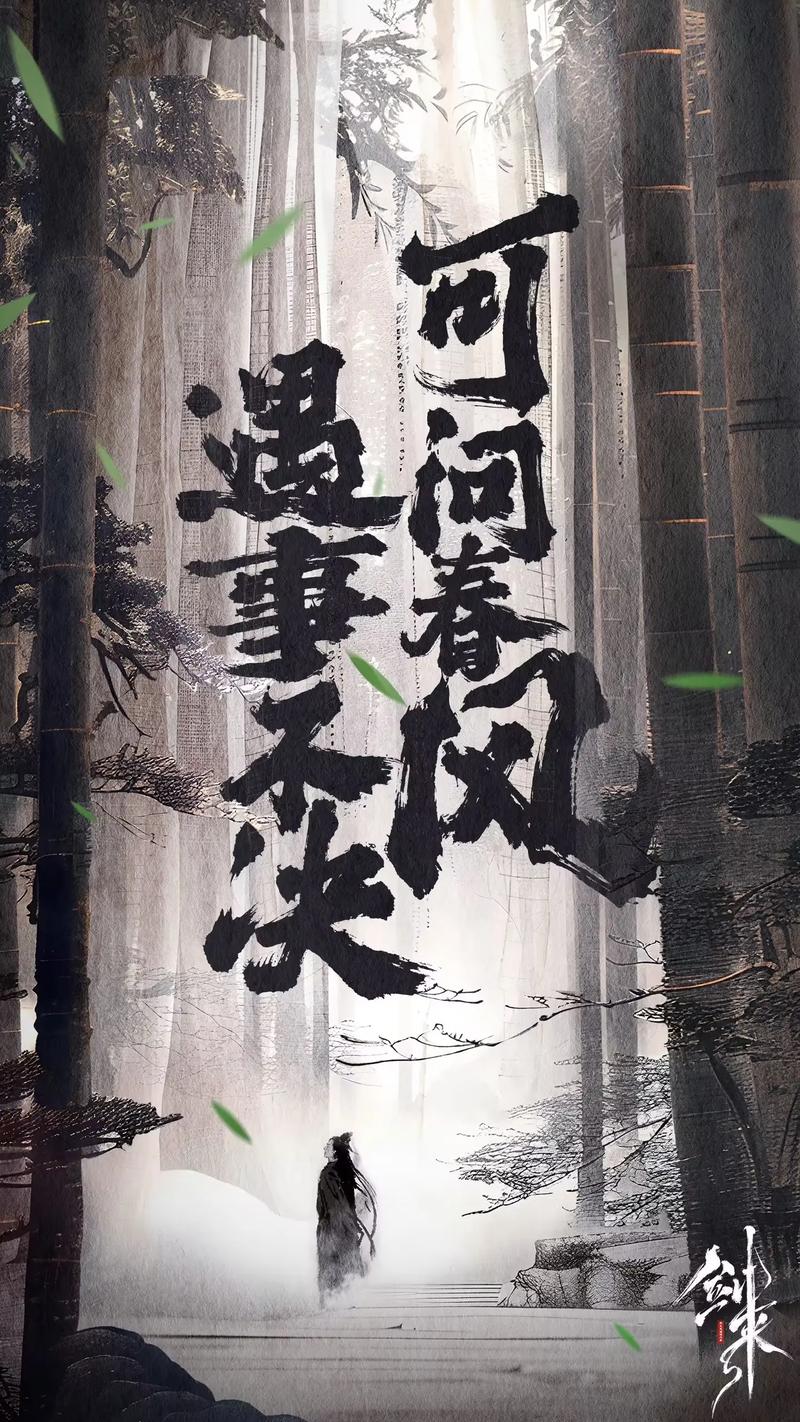 遇事不决
可问春风
剑来